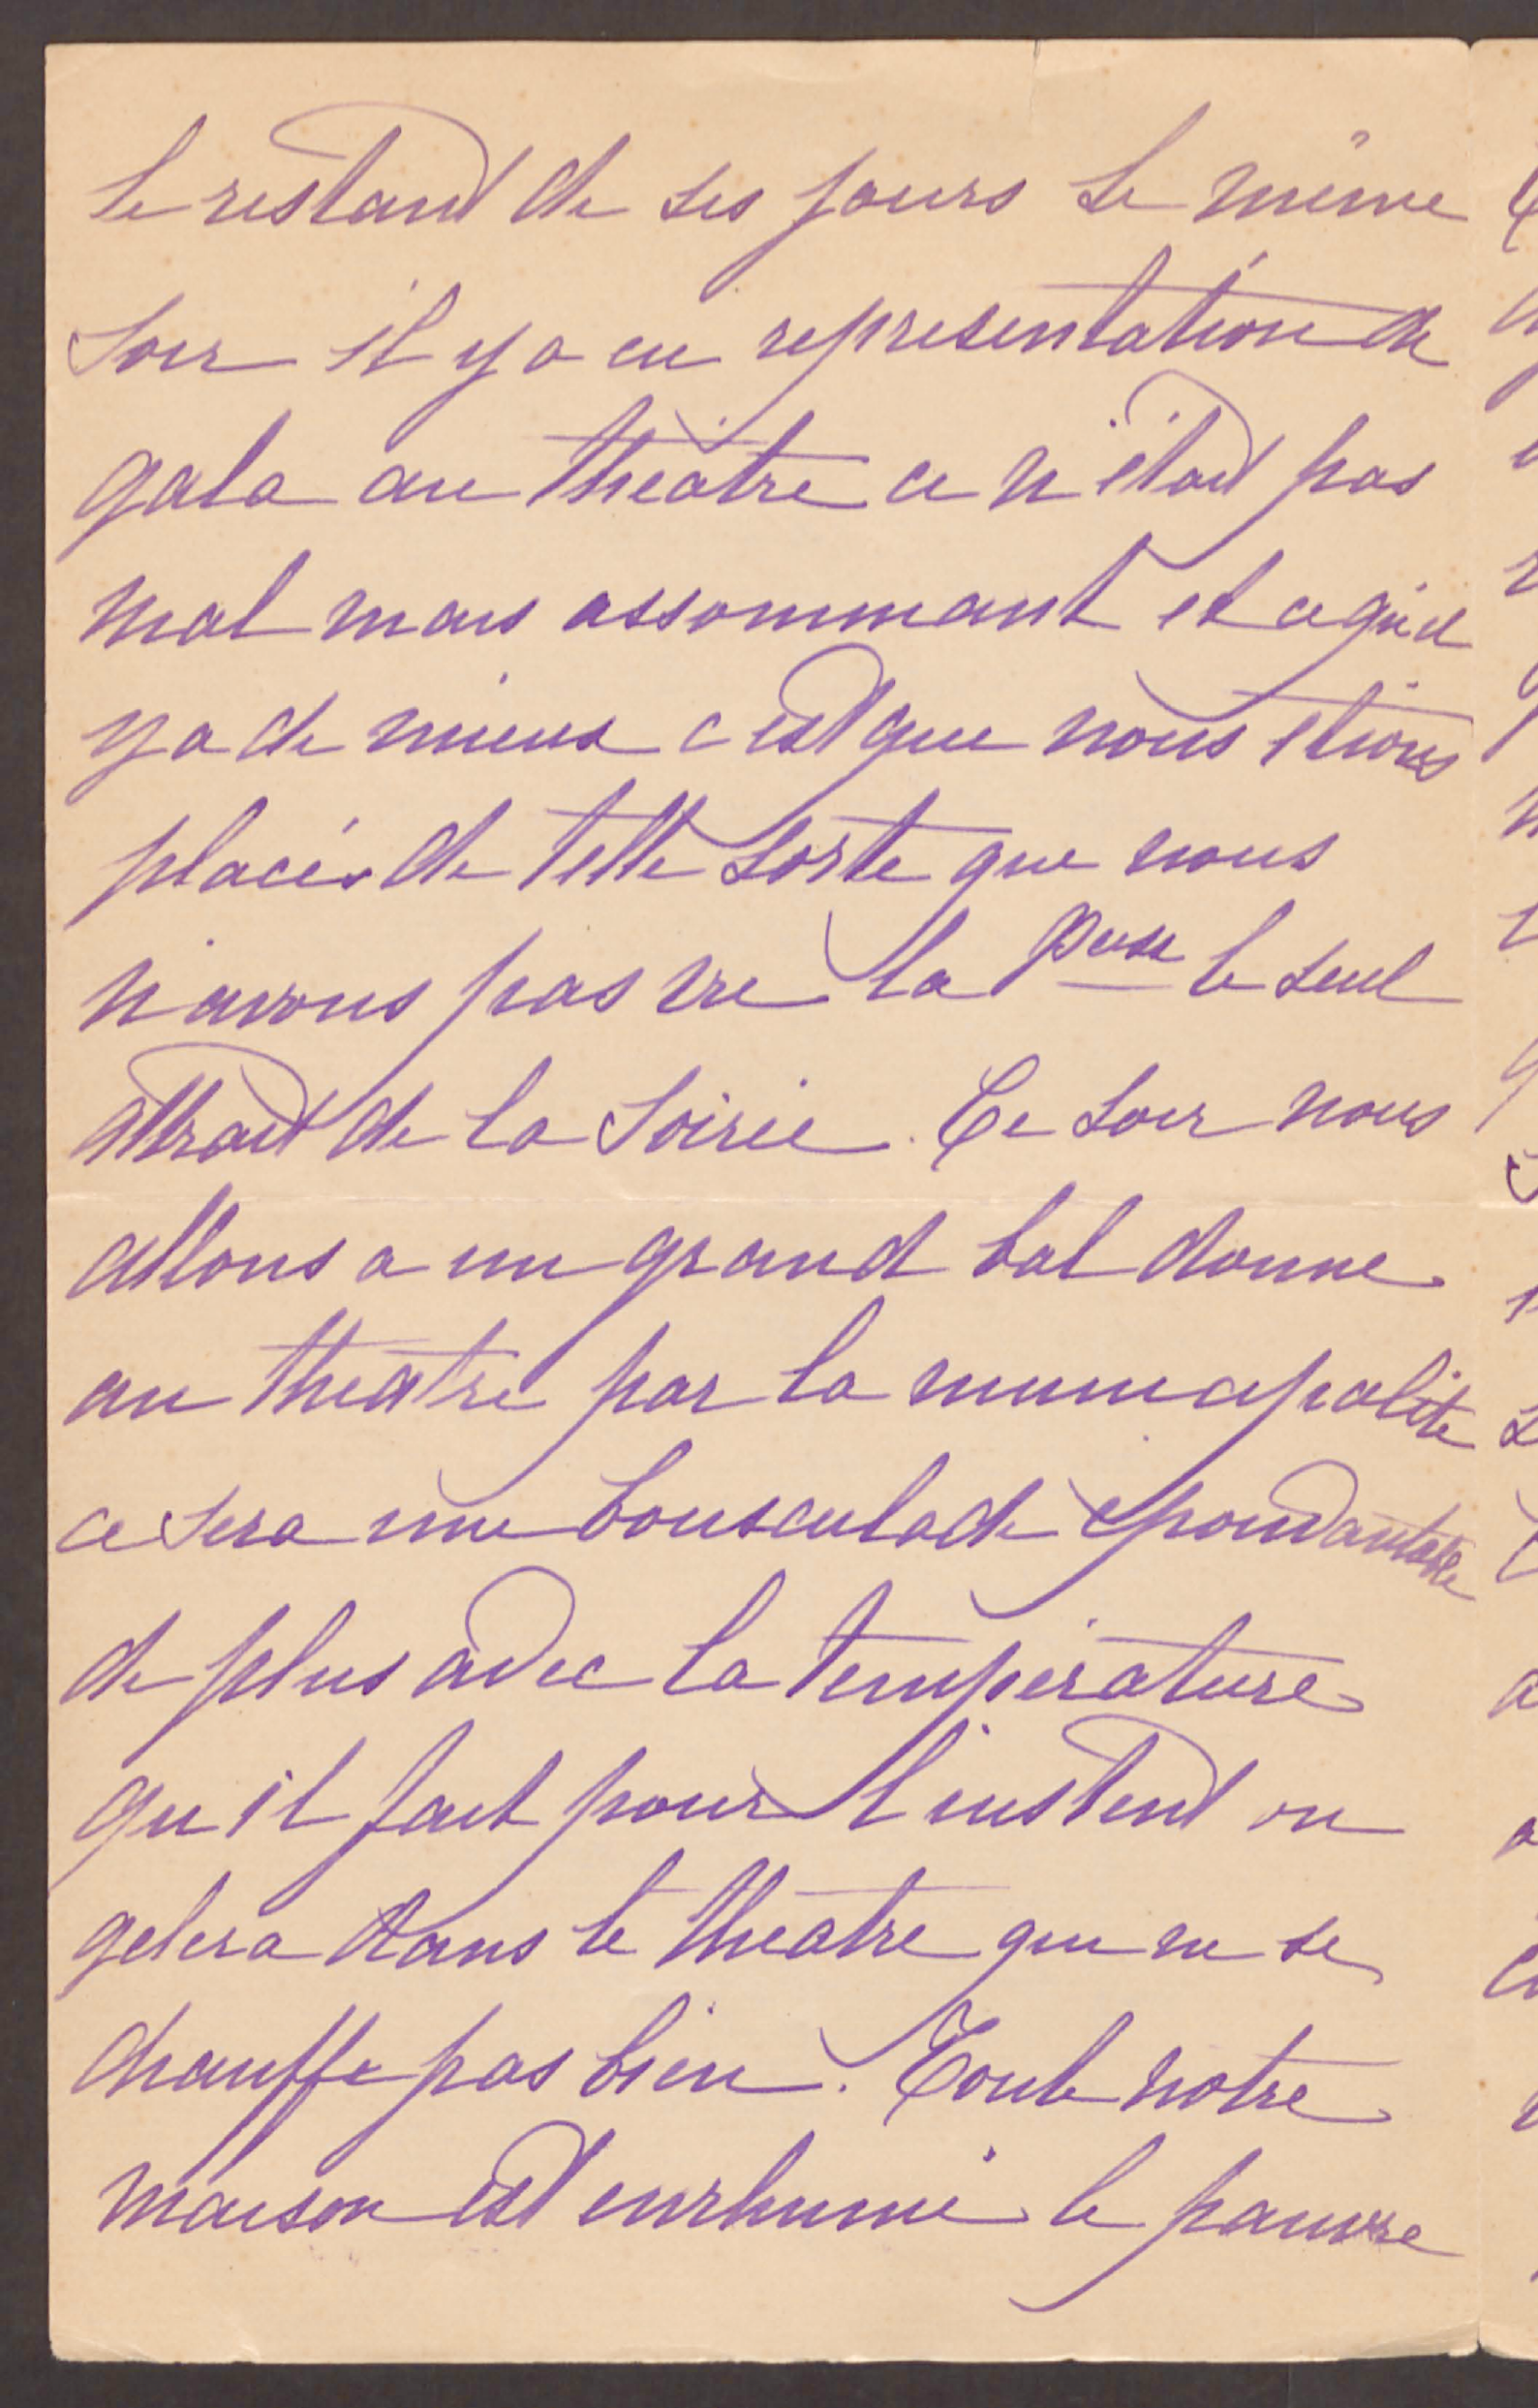 le restant de ses jours Le même
soir il y a eu représentation de
gala au théâtre ce n'était pas
mal mais assommant et ce qu'il
y a de mieux c'est que nous étions
placés de telle sorte que nous
n'avons pas vu la Psse le seul
attrait de la soirée. Ce soir nous
allons a un grand bal donne
au theatre par la municipalite
ce sera une bousculade epouvantable
de plus avec la température
qu'il fait pour l'instent on
gelera dans le theatre qui ne se
chauffe pas bien. Toute notre
maison est enrhumé le pauvre